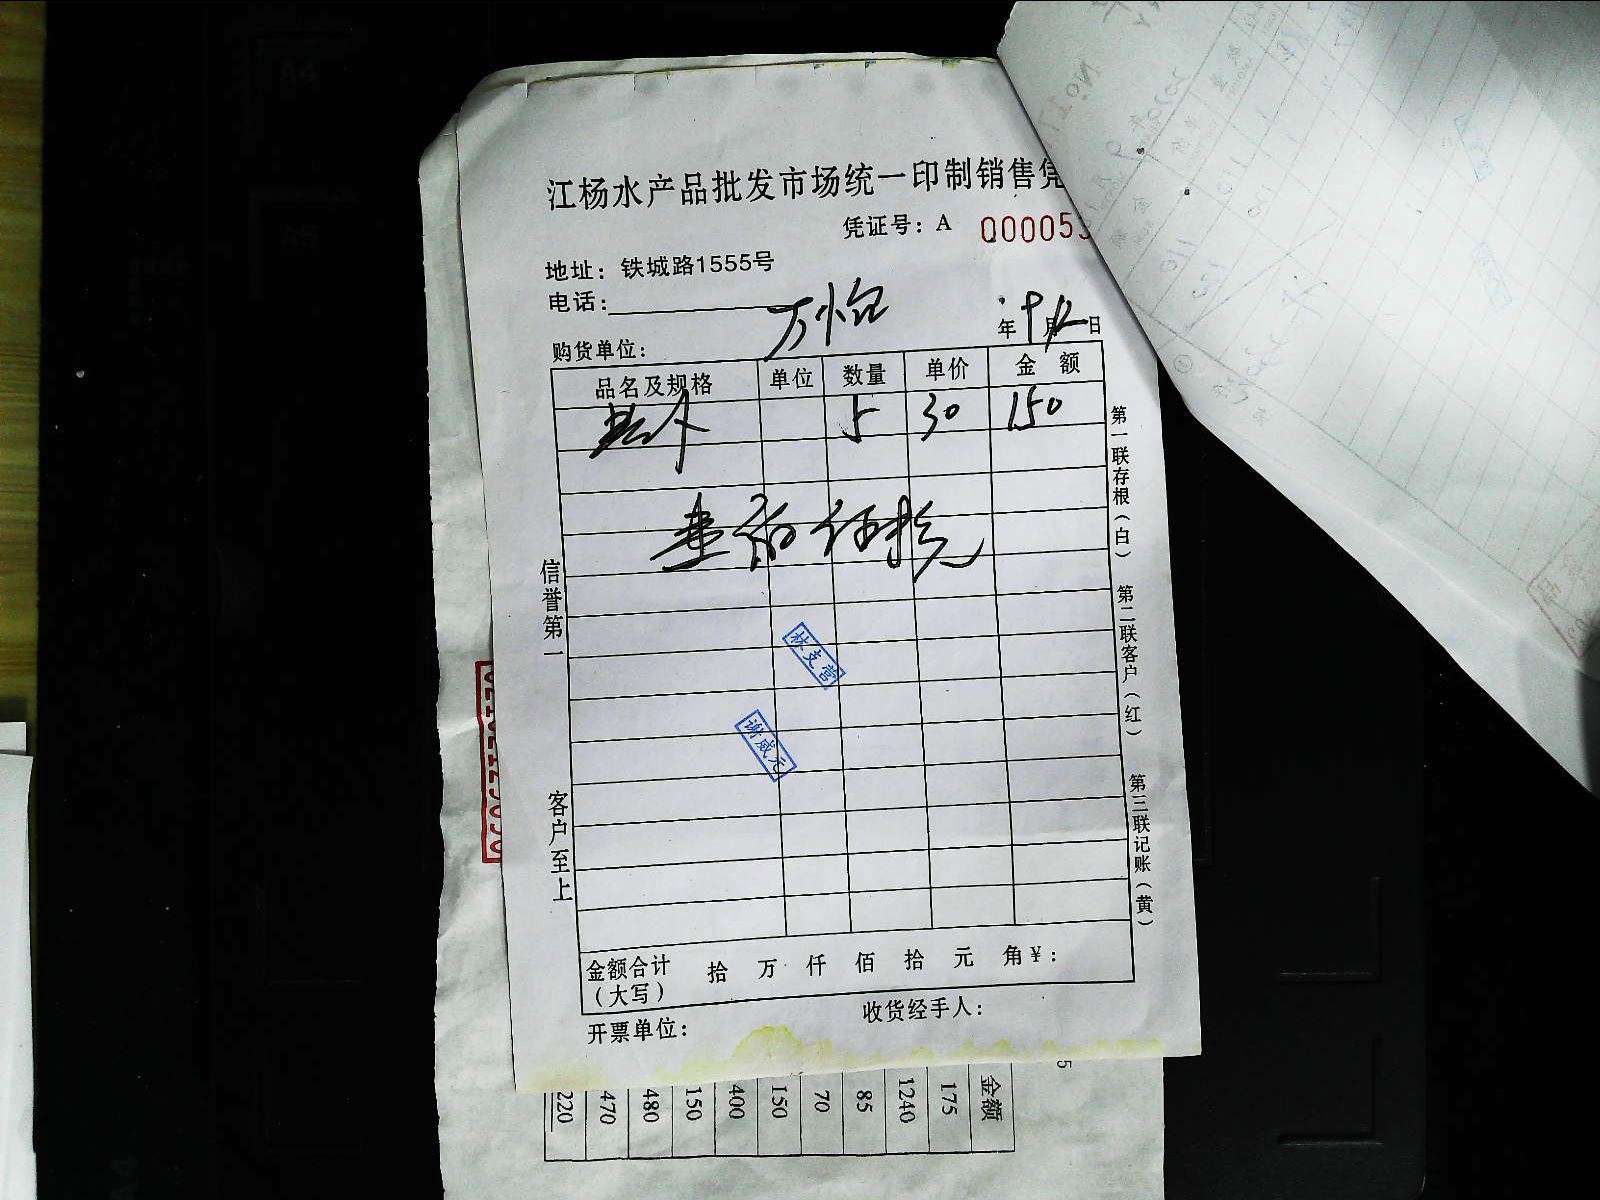 江杨水产品批发市场统一印制销售凭
凭证号：A 000053
地址：铁城路1555号
电话：
年 9月12日
购货单位：
品名及规格 单位 数量 单价 金 额
5 30 150
信誉第一
客户至上
林支营
谢威元
第一联存根（白）
第二联客户（红）
第三联记账（黄）
金额合计（大写） 拾 万 仟 佰 拾 元 角￥：
开票单位： 收货经手人：
金额
175
1240
85
70
150
400
150
480
470
220